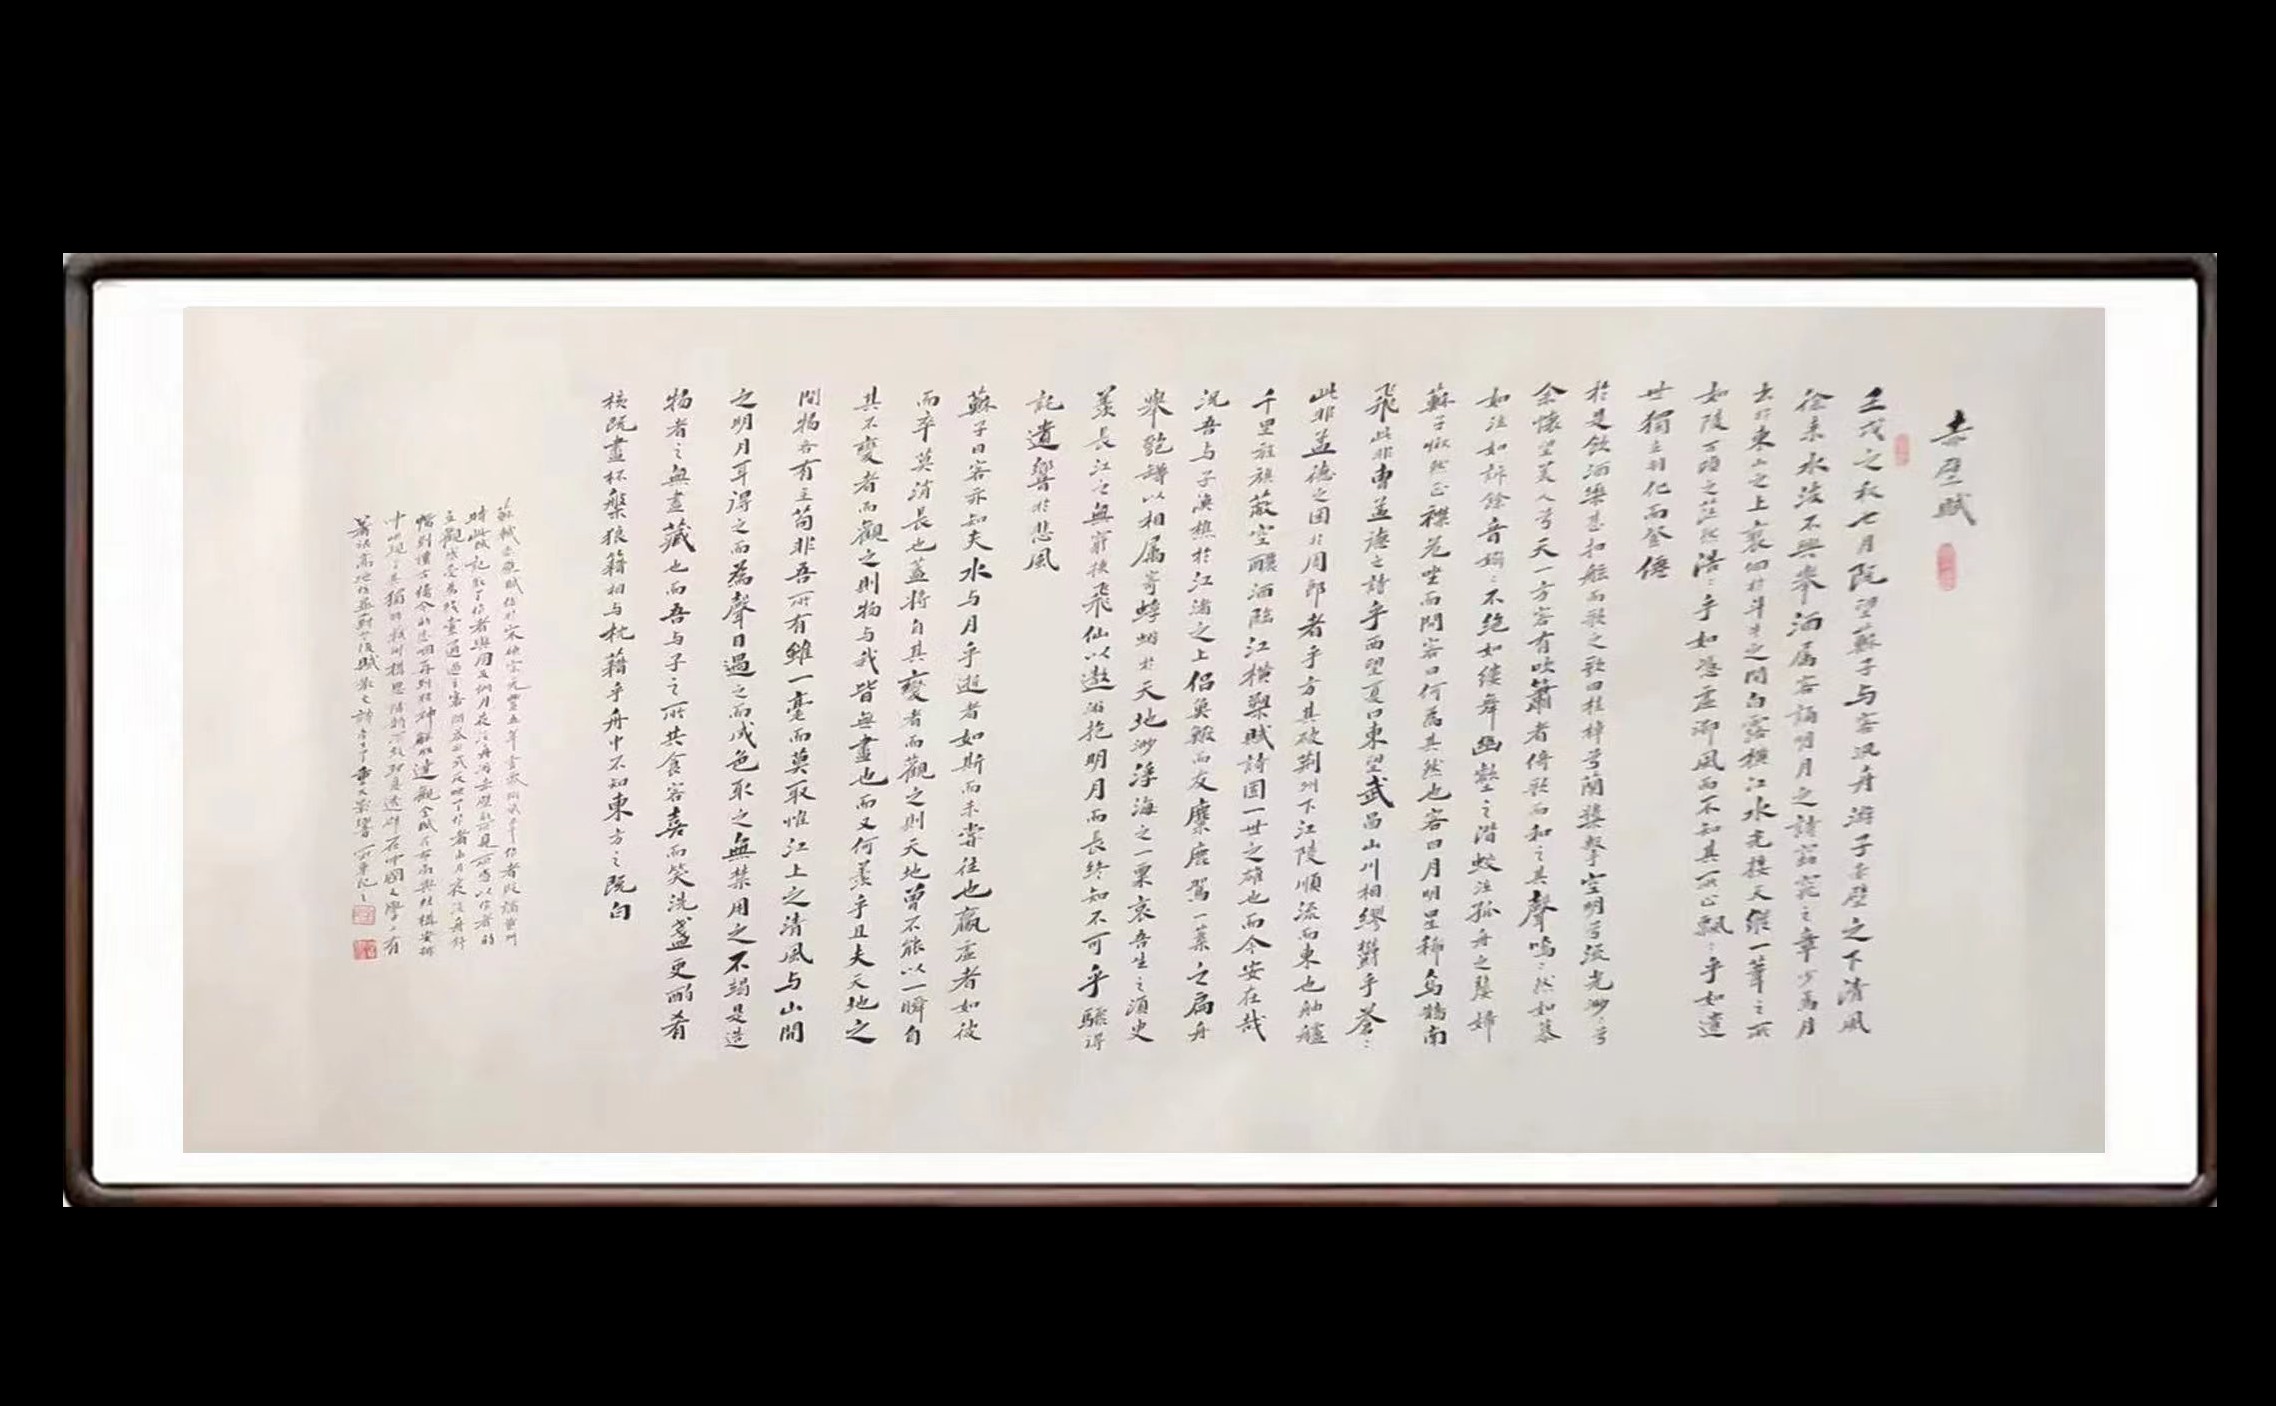 赤壁賦
壬戌之秋七月既望蘇子与客泛舟游于赤壁之下清風
徐来水波不興舉酒属客誦明月之詩窈窕之章少焉月
出於東山之上裵佪於斗牛之間白露横江水光接天縱一葦之所
如陵万頃之茫然浩〻乎如馮虚御風而不知其所止飄〻乎如遺
世獨立羽化而登僊
於是飲酒樂甚扣舷而歌之歌曰桂棹兮蘭槳擊空明兮泝流光渺〻兮
余懷望美人兮天一方客有吹簫者倚歌而和之其聲嗚〻然如慕
如泣如訴餘音嫋〻不絶如縷舞幽壑之潜蛟泣孤舟之嫠婦
蘇子愀然正襟危坐而問客曰何為其然也客曰月明星稀烏鵲南
飛此非曹孟德之詩乎西望夏口東望武昌山川相繆鬱乎蒼〻
此非孟德之困於周郎者乎方其破荆州下江陵順流而東也舳艫
千里旌旗蔽空釃酒臨江横槊賦詩固一世之雄也而今安在哉
况吾与子漁樵於江渚之上侣魚鰕而友麋鹿駕一葉之扁舟
舉匏罇以相属寄蜉蝣於天地渺浮海之一粟哀吾生之須臾
羡長江之無窮挟飛仙以遨游抱明月而長終知不可乎驟得
託遺響於悲風
蘇子曰客亦知夫水与月乎逝者如斯而未甞往也贏虚者如彼
而卒莫消長也蓋将自其變者而觀之則天地曽不能以一瞬自
其不變者而觀之則物与我皆無盡也而又何羨乎且夫天地之
間物各有主苟非吾所有雖一毫而莫取惟江上之清風与山間
之明月耳得之而為聲目遇之而成色取之無禁用之不竭是造
物者之無盡藏也而吾与子之所共食客喜而笑洗盞更酌肴
核既盡杯槃狼籍相与枕藉乎舟中不知東方之既白
蘇軾赤壁賦作於宋神宗元豐五年
時此賦記叙了作者與朋友們月夜泛舟游赤壁的所見所感以作者的
主觀感受為
懷到情神解脱達觀全賦
在中國文學上有
著很高地位并對之後賦散文詩産生重大影響